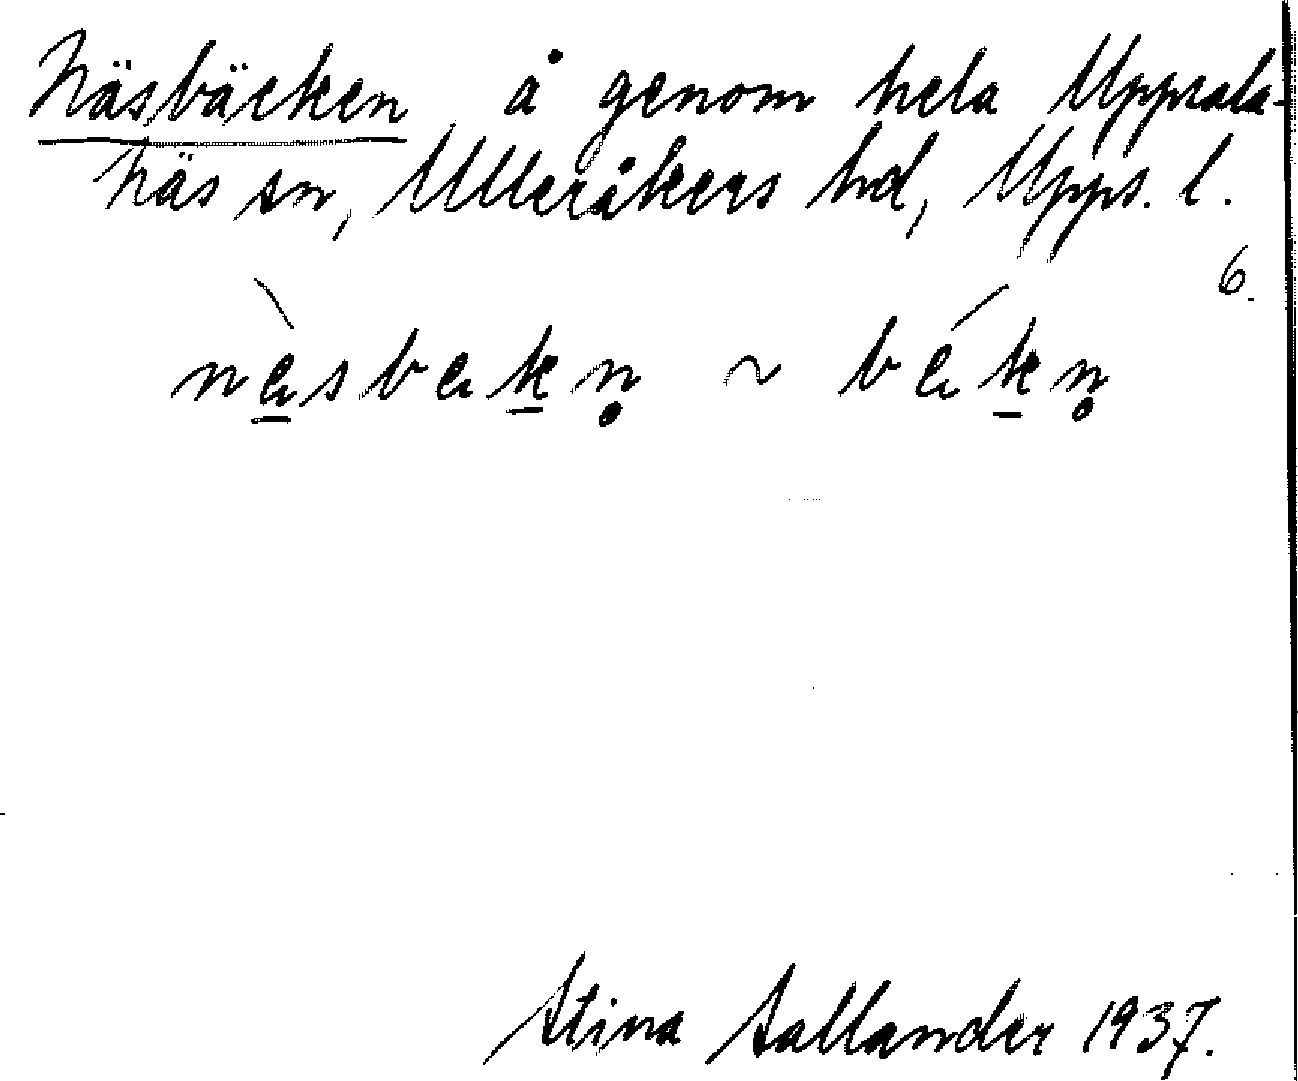 Näsbäcken å genom hela Uppsala-
näs sn, Ulleråkers hd, Upps. l.
6.
nèsbekn̥ ~ békn̥
Stina Sallander 1937.